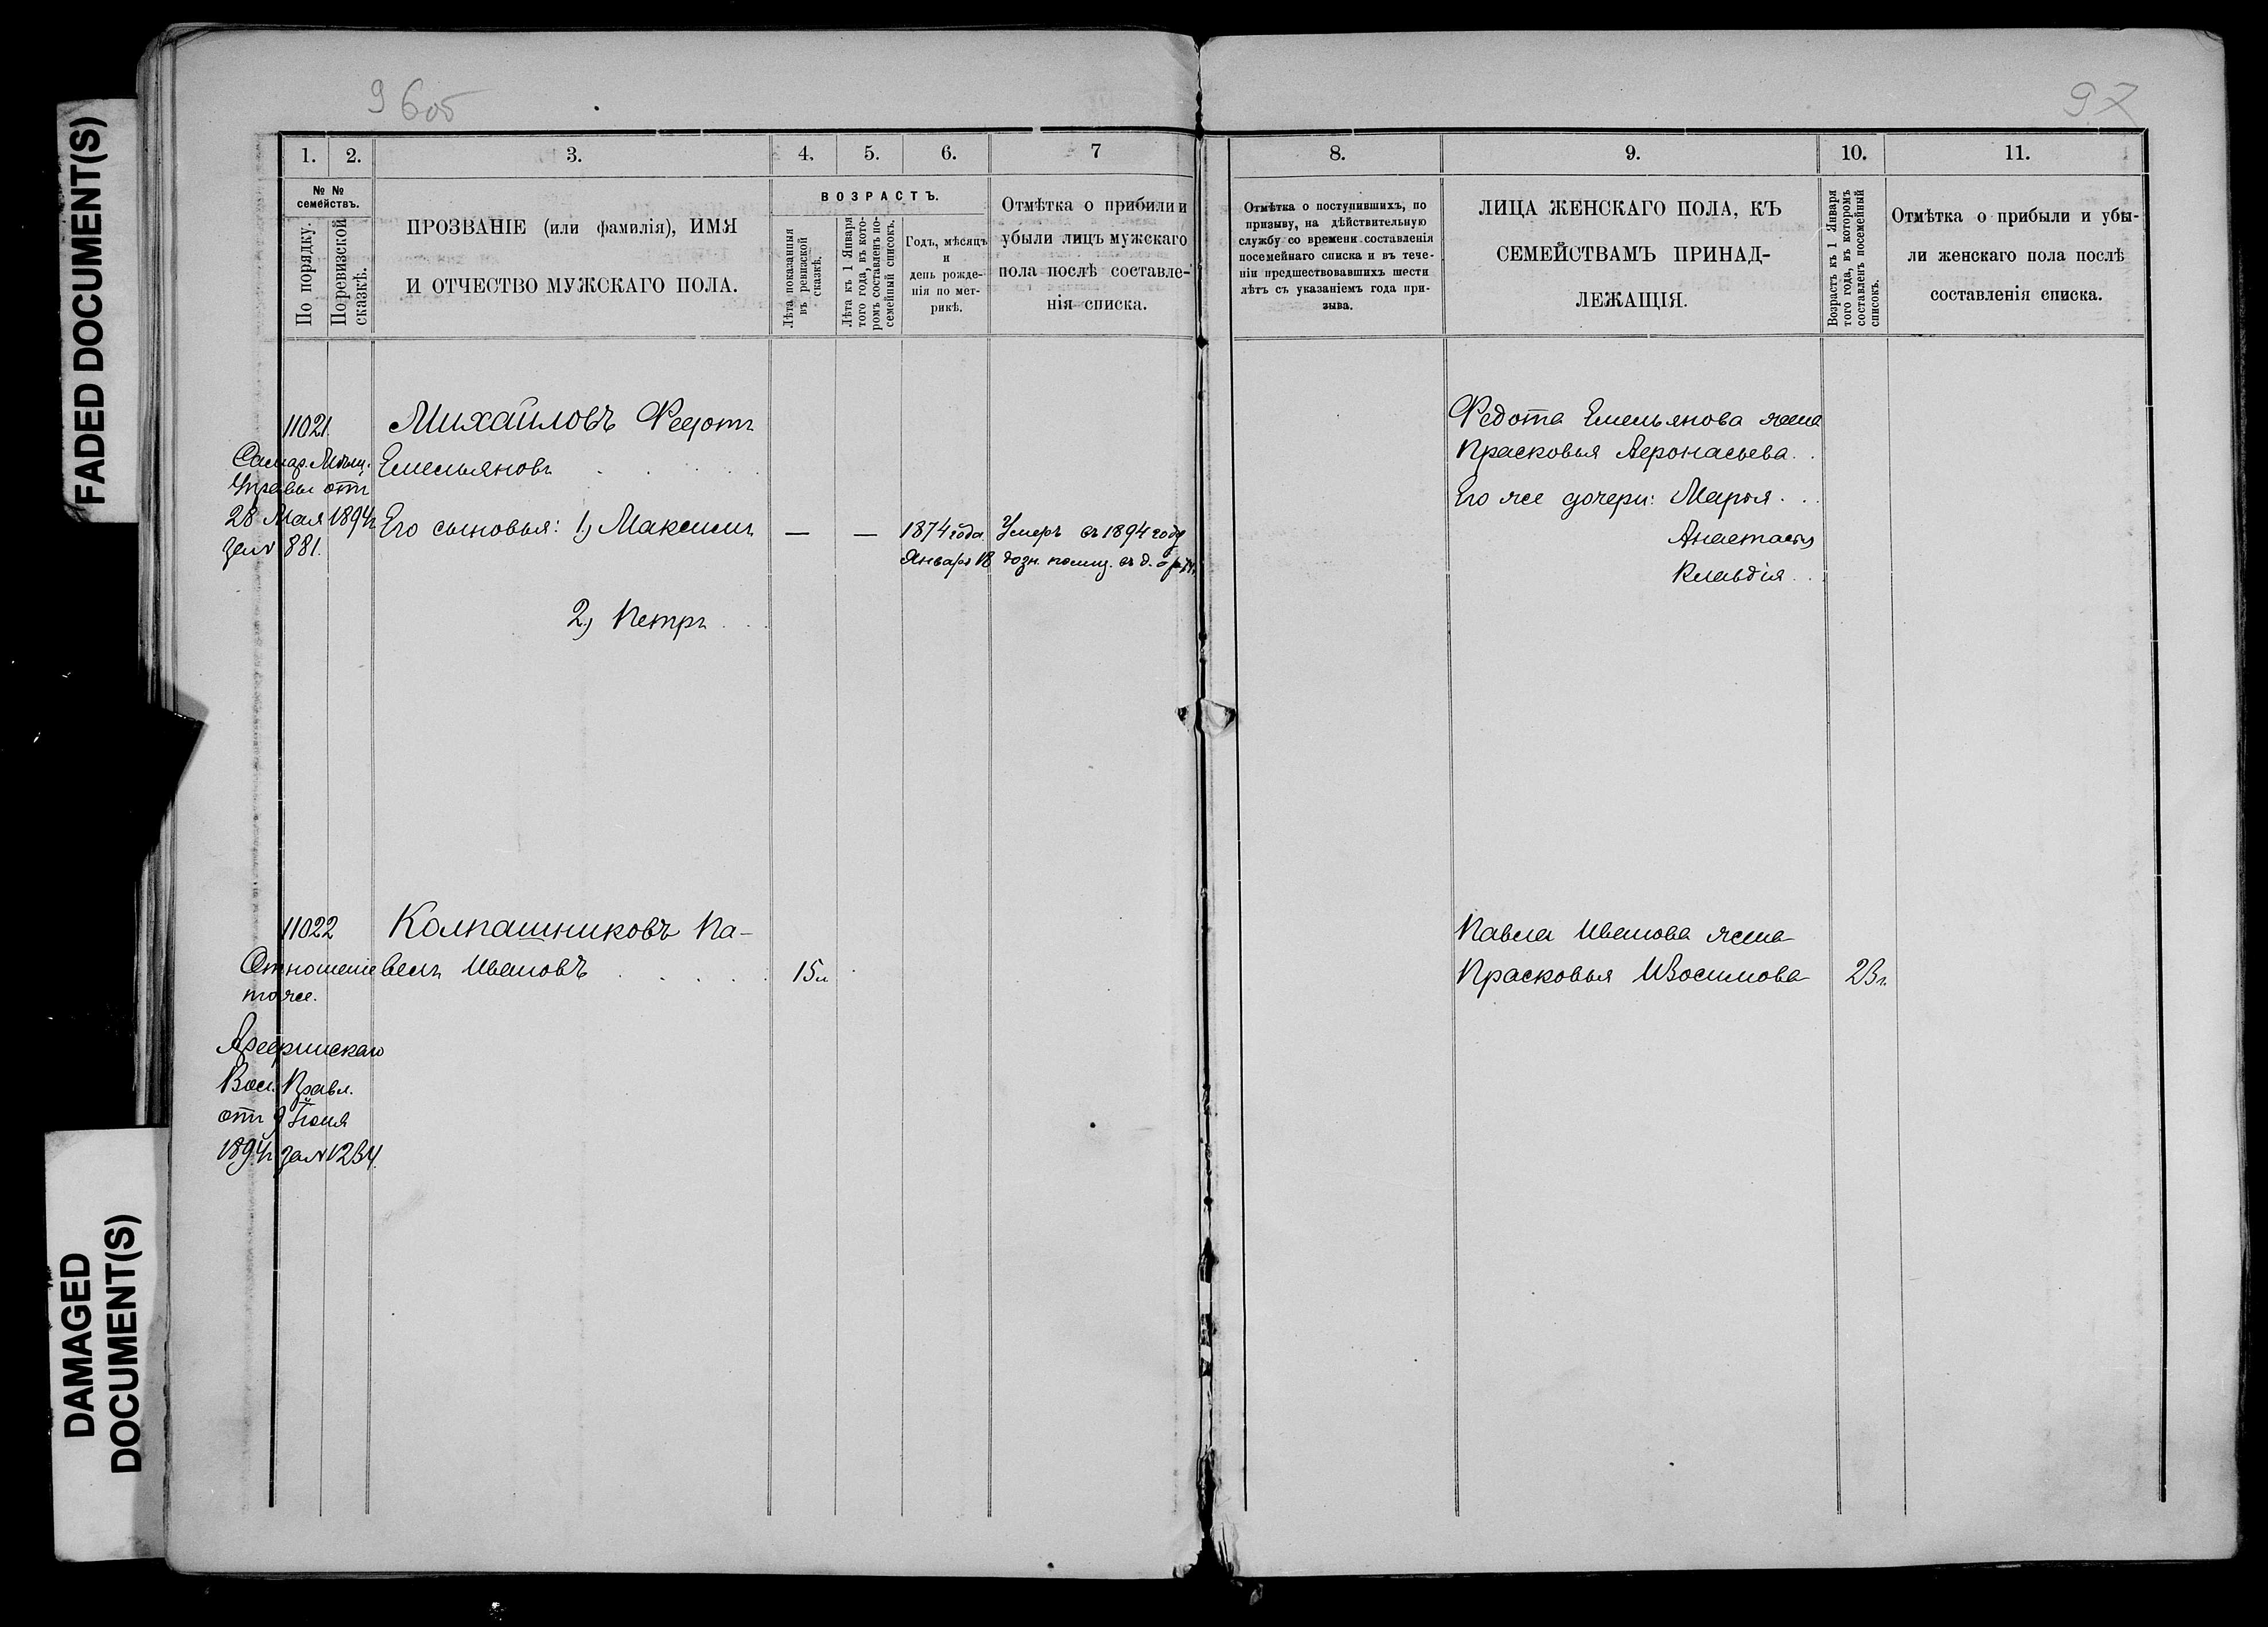 FADED DOCUMENT(S)
DAMAGED
DOCUMENT(S)
96об
1.
2.
3.
4.
5.
6.
7
№ №
семействъ.
По порядку.
По ревизской
сказкѣ.
ПРОЗВАНІЕ (или фамилія), ИМЯ
И ОТЧЕСТВО МУЖСКАГО ПОЛА.
ВОЗРАСТЪ.
Лѣта показанныя
въ ревизской
сказкѣ.
Лѣта къ 1 Января
того года, въ кото-
ромъ составленъ по-
семейный списокъ.
Годъ, мѣсяцъ
и
день рожде-
нія по мет-
рикѣ.
Отмѣтка о прибыли и
убыли лицъ мужскаго
пола послѣ составле-
нія списка.
11021.
Самар. Мѣщ.
Управы отъ
28 Мая 1894г
за № 881.
Михайловъ Федотъ
Емельяновъ
Его сыновья: 1) Максимъ — —
1874 года
Января 18
Умеръ въ 1894 году
дозн. полиц. въ д.
2) Петръ
11022
Отношеніе
тоже.
Колпашниковъ Па-
велъ Ивановъ 15л
Вол. Правл.
отъ 9 Іюня
1894г за № 1234.
97
8.
9.
10.
11.
Отмѣтка о поступившихъ, по
призыву, на дѣйствительную
службу со времени составленія
посемейнаго списка и въ тече-
ніи предшествовавшихъ шести
лѣтъ съ указаніемъ года при-
зыва.
ЛИЦА ЖЕНСКАГО ПОЛА, КЪ
СЕМЕЙСТВАМЪ ПРИНАД-
ЛЕЖАЩІЯ.
Возрастъ къ 1 Января
того года, въ которомъ
составленъ посемейный
списокъ.
Отмѣтка о прибыли и убы-
ли женскаго пола послѣ
составленія списка.
Федота Емельянова жена
Прасковья Афонасьева
Его же дочери: Марья
Анастасія
Клавдія
Павла Иванова жена
Прасковья Изосимова 23г.